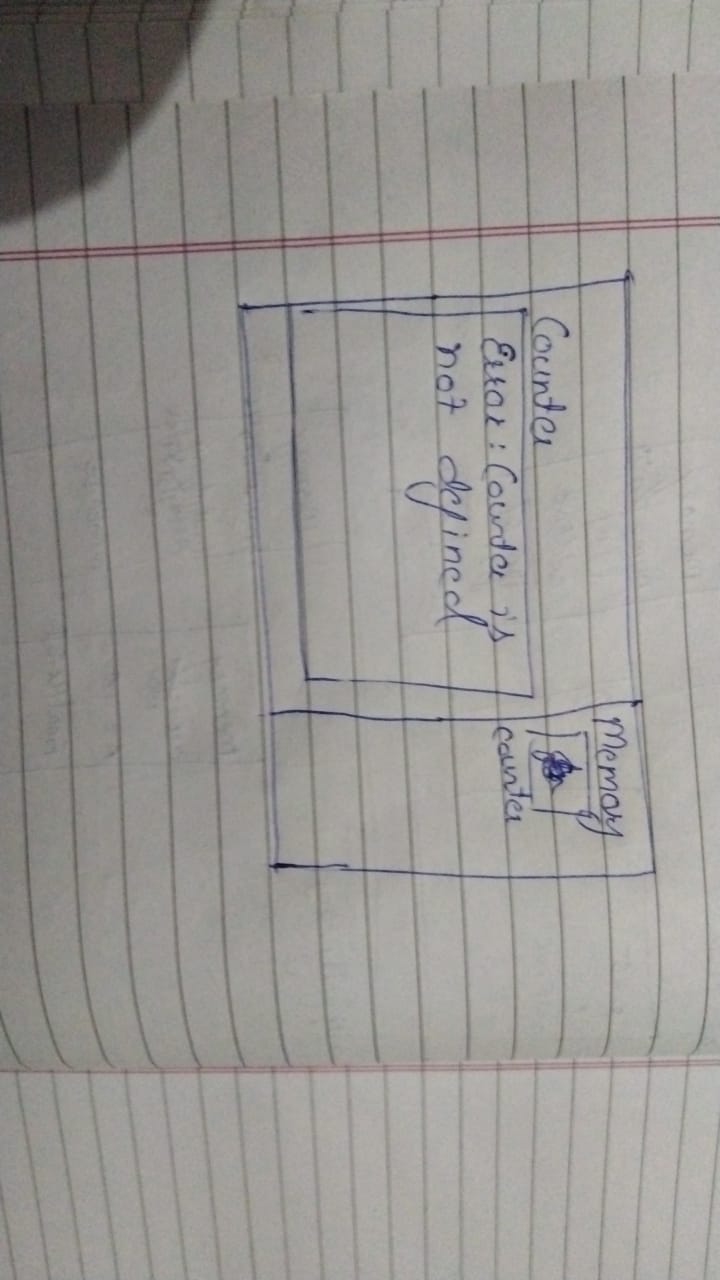 Counter
Error : Counter is
not defined
Memory
counter